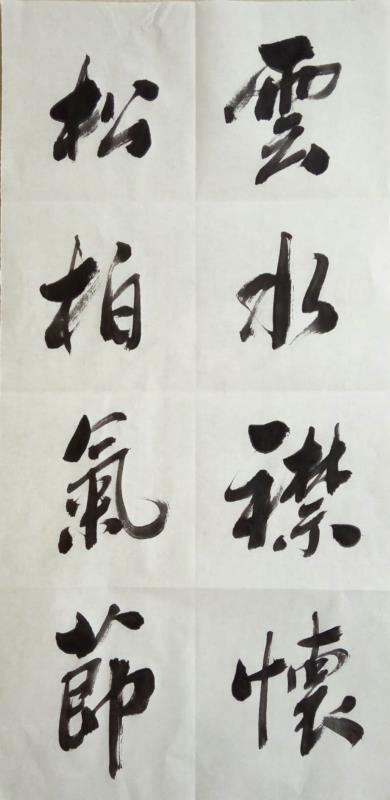 雲水襟懷
松柏氣節